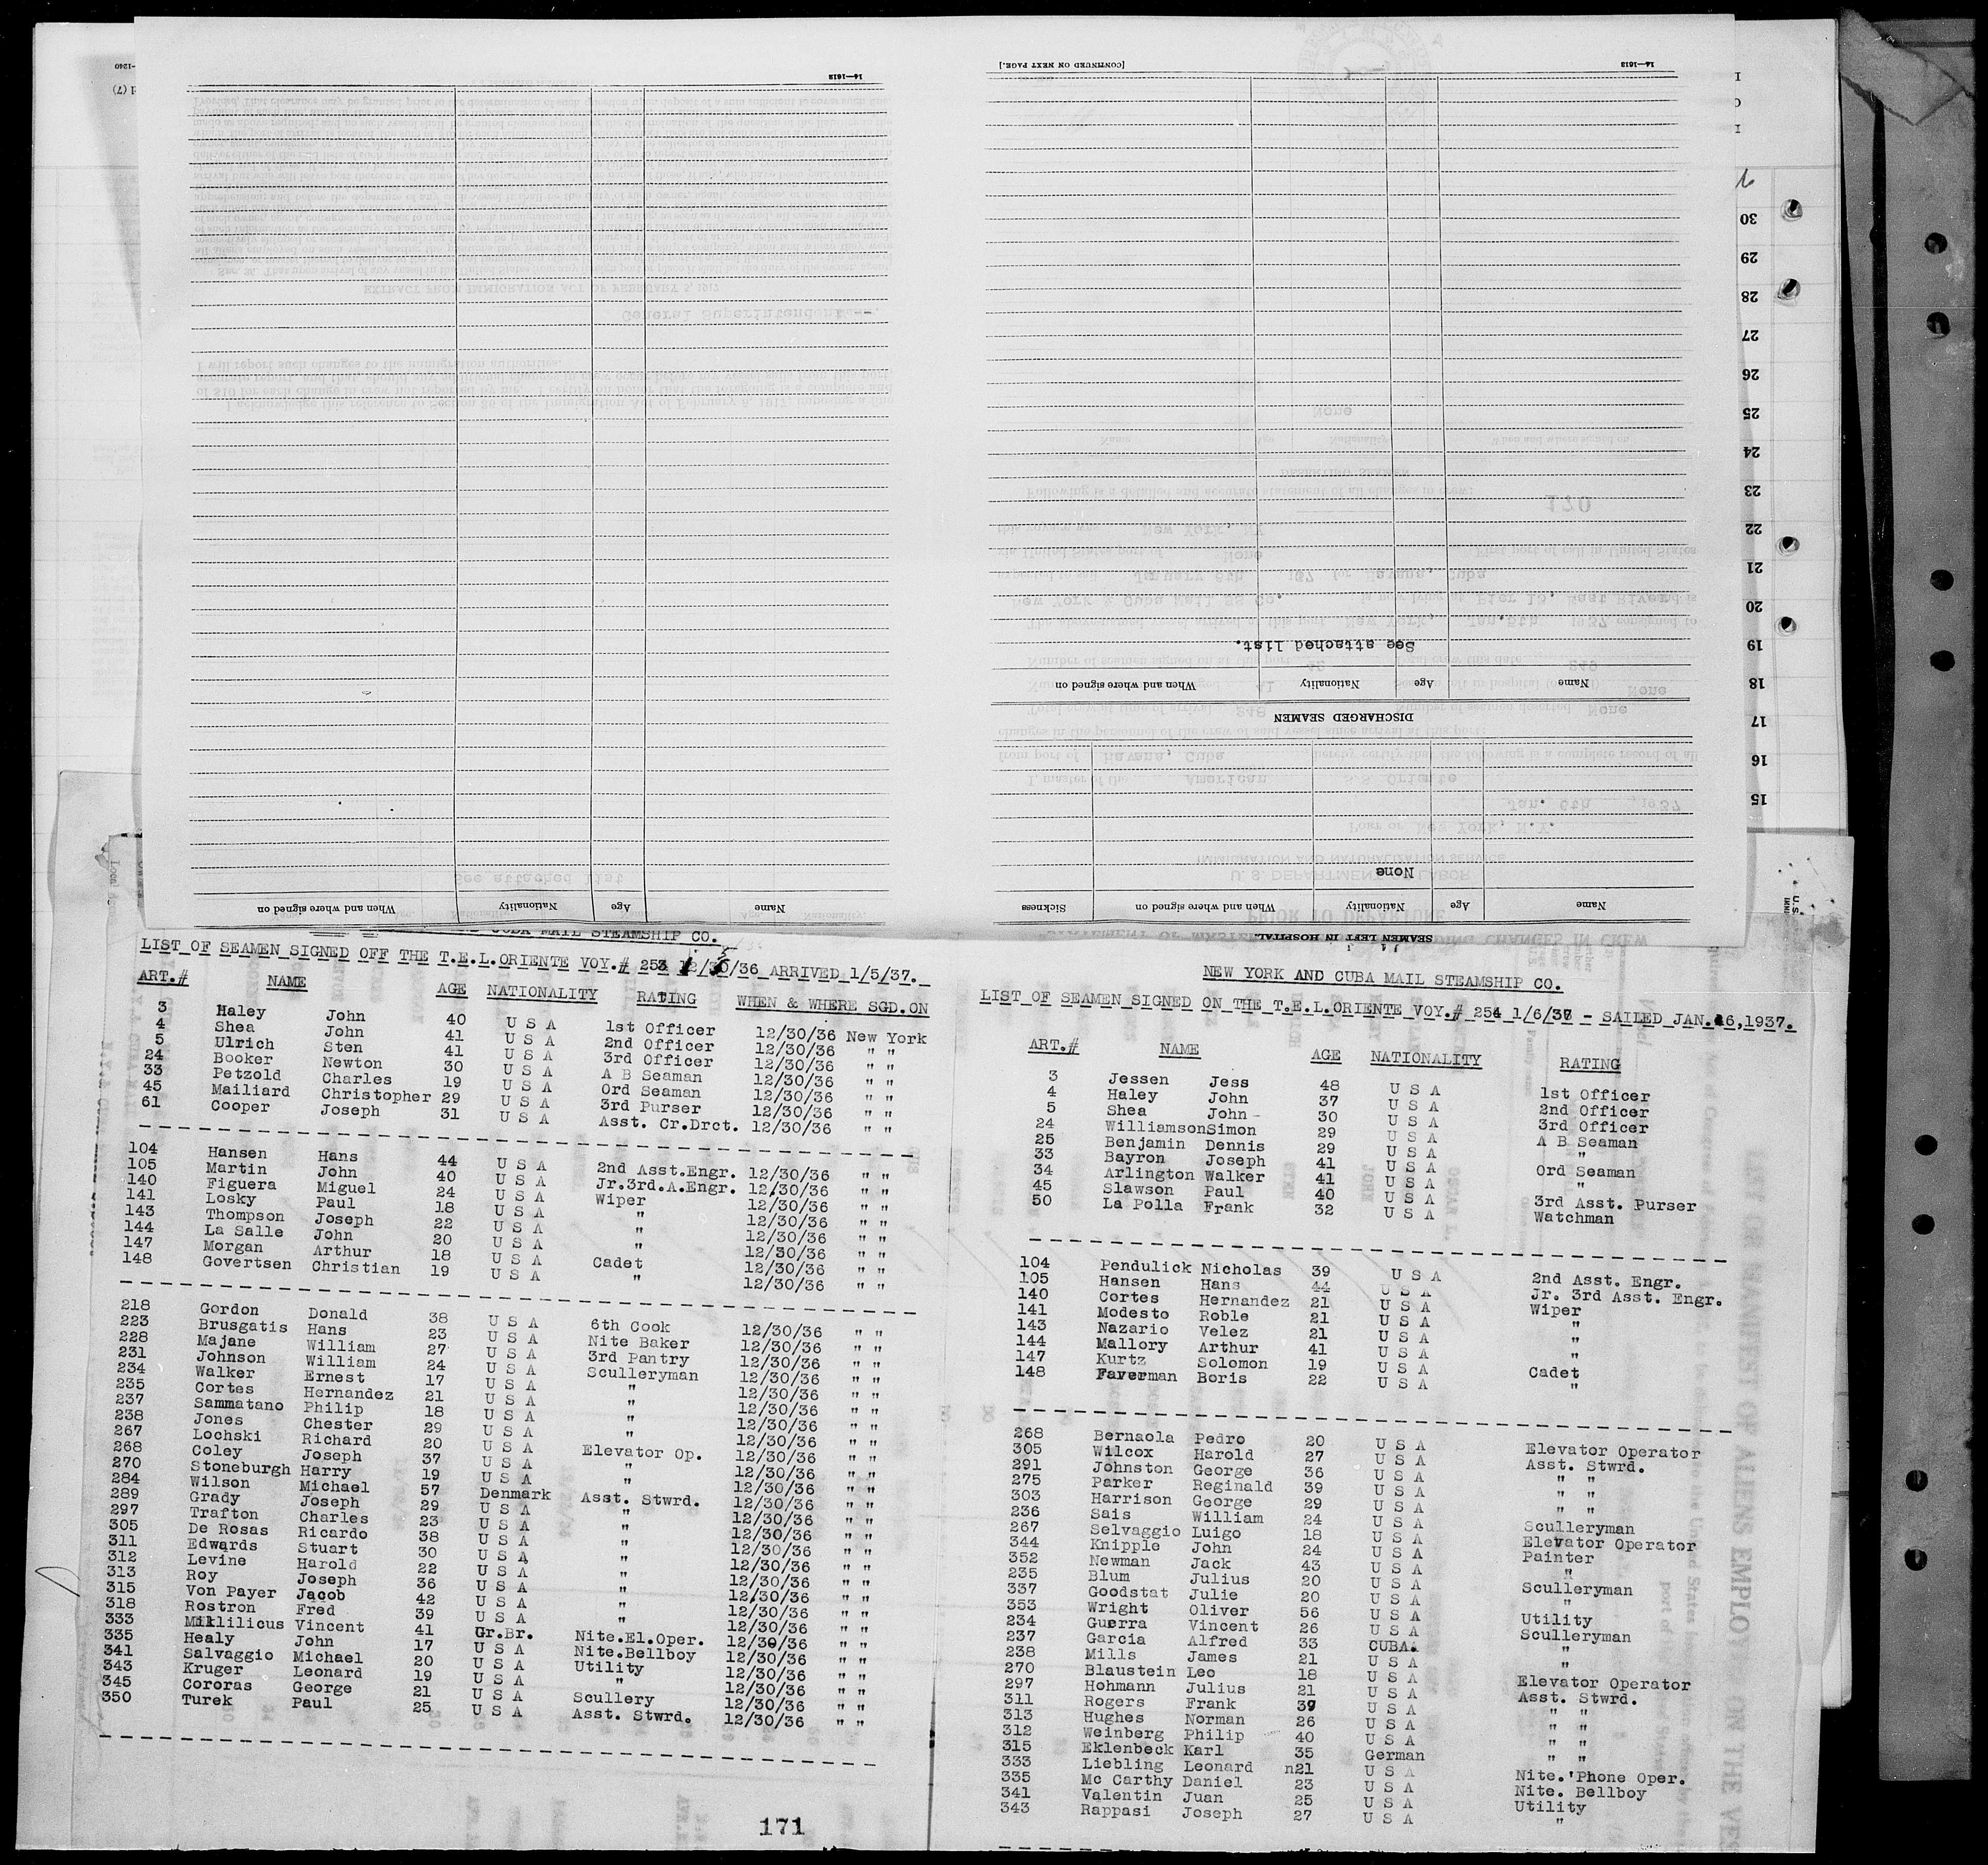 14—1613
[CONTINUED ON NEXT PAGE.]
See attached list.
Name Age Nationality When and where signed on
DISCHARGED SEAMEN
None
Name Age Nationality When and where signed on Sickness
SEAMEN LEFT IN HOSPITAL
14—1612
Name Age Nationality When and where signed on
30
29
28
27
26
25
24
23
22
21
20
19
18
17
16
15
CUBA MAIL STEAMSHIP CO.
LIST OF SEAMEN SIGNED OFF THE T.E.L.ORIENTE VOY.# 253 12/30/36 ARRIVED 1/5/37.
ART.# NAME AGE NATIONALITY RATING WHEN & WHERE SGD.ON
3 Haley John 40 U S A 1st Officer 12/30/36 New York
4 Shea John 41 U S A 2nd Officer 12/30/36 " "
5 Ulrich Sten 41 U S A 3rd Officer 12/30/36 " "
24 Booker Newton 30 U S A A B Seaman 12/30/36 " "
33 Petzold Charles 19 U S A Ord Seaman 12/30/36 " "
45 Mailiard Christopher 29 U S A 3rd Purser 12/30/36 " "
61 Cooper Joseph 31 U S A Asst. Cr.Drct. 12/30/36 " "
104 Hansen Hans 44 U S A 2nd Asst.Engr. 12/30/36 " "
105 Martin John 40 U S A Jr.3rd.A.Engr. 12/30/36 " "
140 Figuera Miguel 24 U S A Wiper 12/30/36 " "
141 Losky Paul 18 U S A " 12/30/36 " "
143 Thompson Joseph 22 U S A " 12/30/36 " "
144 La Salle John 20 U S A " 12/30/36 " "
147 Morgan Arthur 18 U S A Cadet 12/30/36 " "
148 Govertsen Christian 19 U S A " 12/30/36 " "
218 Gordon Donald 38 U S A 6th Cook 12/30/36 " "
223 Brusgatis Hans 23 U S A Nite Baker 12/30/36 " "
228 Majane William 27 U S A 3rd Pantry 12/30/36 " "
231 Johnson William 24 U S A Sculleryman 12/30/36 " "
234 Walker Ernest 17 U S A " 12/30/36 " "
235 Cortes Hernandez 21 U S A " 12/30/36 " "
237 Sammatano Philip 18 U S A " 12/30/36 " "
238 Jones Chester 29 U S A " 12/30/36 " "
267 Lochski Richard 20 U S A Elevator Op. 12/30/36 " "
268 Coley Joseph 37 U S A " 12/30/36 " "
270 Stoneburgh Harry 19 U S A " 12/30/36 " "
284 Wilson Michael 57 Denmark Asst. Stwrd. 12/30/36 " "
289 Grady Joseph 29 U S A " 12/30/36 " "
297 Trafton Charles 23 U S A " 12/30/36 " "
305 De Rosas Ricardo 38 U S A " 12/30/36 " "
311 Edwards Stuart 30 U S A " 12/30/36 " "
312 Levine Harold 22 U S A " 12/30/36 " "
313 Roy Joseph 36 U S A " 12/30/36 " "
315 Von Payer Jacob 42 U S A " 12/30/36 " "
318 Rostron Fred 39 U S A " 12/30/36 " "
333 Miklilicus Vincent 41 Gr.Br. Nite.El.Oper. 12/30/36 " "
335 Healy John 17 U S A Nite.Bellboy 12/30/36 " "
341 Salvaggio Michael 20 U S A Utility 12/30/36 " "
343 Kruger Leonard 19 U S A " 12/30/36 " "
345 Cororas George 21 U S A Scullery 12/30/36 " "
350 Turek Paul 25 U S A Asst. Stwrd. 12/30/36 " "
171
NEW YORK AND CUBA MAIL STEAMSHIP CO.
LIST OF SEAMEN SIGNED ON THE T.E.L.ORIENTE VOY.# 254 1/6/37 - SAILED JAN.6,1937.
ART.# NAME AGE NATIONALITY RATING
3 Jessen Jess 48 U S A 1st Officer
4 Haley John 37 U S A 2nd Officer
5 Shea John 30 U S A 3rd Officer
24 WilliamsonSimon 29 U S A A B Seaman
25 Benjamin Dennis 29 U S A "
33 Bayron Joseph 41 U S A Ord Seaman
34 Arlington Walker 41 U S A "
45 Slawson Paul 40 U S A 3rd Asst. Purser
50 La Polla Frank 32 U S A Watchman
104 Pendulick Nicholas 39 U S A 2nd Asst. Engr.
105 Hansen Hans 44 U S A Jr. 3rd Asst. Engr.
140 Cortes Hernandez 21 U S A Wiper
141 Modesto Roble 21 U S A "
143 Nazario Velez 21 U S A "
144 Mallory Arthur 41 U S A "
147 Kurtz Solomon 19 U S A Cadet
148 Faverman Boris 22 U S A "
268 Bernaola Pedro 20 U S A Elevator Operator
305 Wilcox Harold 27 U S A Asst. Stwrd.
291 Johnston George 36 U S A " "
275 Parker Reginald 39 U S A " "
303 Harrison George 29 U S A " "
236 Sais William 24 U S A Sculleryman
267 Selvaggio Luigo 18 U S A Elevator Operator
344 Knipple John 24 U S A Painter
352 Newman Jack 43 U S A "
235 Blum Julius 20 U S A Sculleryman
337 Goodstat Julie 20 U S A "
353 Wright Oliver 56 U S A Utility
234 Guerra Vincent 26 U S A Sculleryman
237 Garcia Alfred 33 CUBA. "
238 Mills James 21 U S A "
270 Blaustein Leo 18 U S A Elevator Operator
297 Hohmann Julius 21 U S A Asst. Stwrd.
311 Rogers Frank 39 U S A " "
313 Hughes Norman 26 U S A " "
312 Weinberg Philip 40 U S A " "
315 Eklenbeck Karl 35 German " "
333 Liebling Leonard n21 U S A Nite.'Phone Oper.
335 Mc Carthy Daniel 23 U S A Nite. Bellboy
341 Valentin Juan 25 U S A Utility
343 Rappasi Joseph 27 U S A "